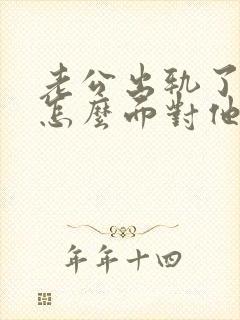 老公出轨了
怎麼面對他
年年十四